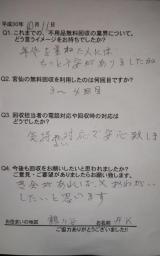 平成30年10月11日
Q1. これまでの、不用品無料回収の業界について、
どう言うイメージをお持ちでしたか?
年を重ねた人には
もっと不安がありましたが
Q2. 宮仙の無料回収を利用したのは何回目ですか?
3〜4回目
Q3. 回収担当者の電話対応や回収時の対応は
どうでしたか?
気持の対応で安心致しま
Q4. 今後も回収をお願いしたいと思われましたか?
ご意見・ご要望がありましたらお願いします。
したいと思います
お住まいの地域 鶴ヶ谷 お名前 A.K
ご協力ありがとうございました!!